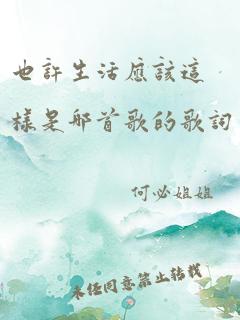 也許生活應該這
樣是那首歌的歌詞
何必姐姐
未經同意禁止轉載